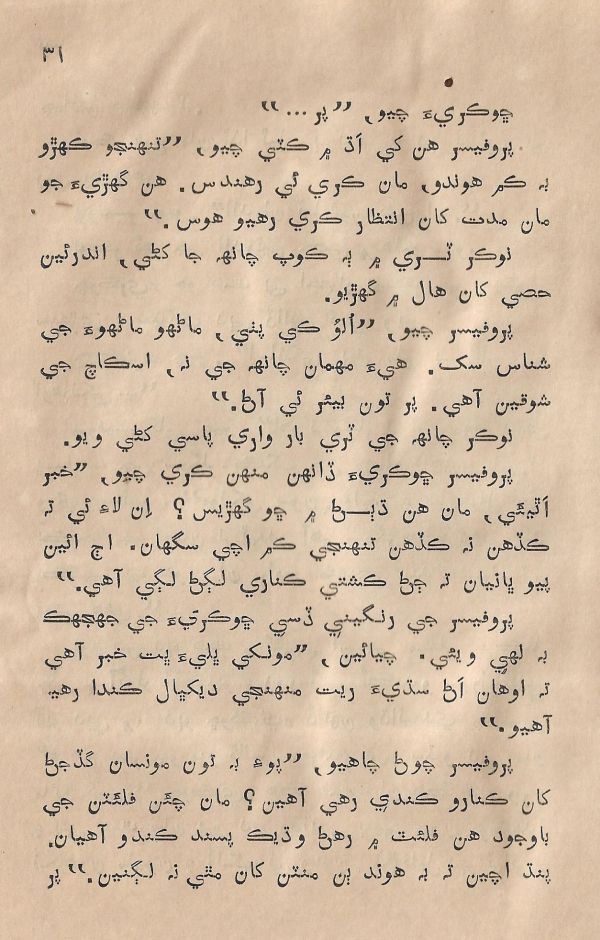 ٣١
ڇوڪريءَ چيو, ”پر...“
پروفيسر هن کي اَڌ ۾ ڪٽي چيو, ”تنهنجو ڪهڙو
بہ ڪم هوندو, مان ڪري ئي رهندس. هن گهڙيءَ جو
مان مدت کان انتظار ڪري رهيو هوس.“
نوڪر ٽـــري ۾ ٻہ ڪوپ چانهہ جا کڻي, اندرئين
حصي کان هال ۾ گهڙيو.
پروفيسر چيو, ”اُلوُ ڪي پٺي, ماڻهو ماڻهوءَ جي
شناس سک. هيءَ مهمان چانهہ جي نہ, اسڪاچ جي
شوقين آهي. پر تون بيئر ئي آڻ.“
نوڪر چانهہ جي ٽري بار واري پاسي کڻي ويو.
پروفيسر ڇوڪريءَ ڏانهن منهن ڪري چيو, ”خبر
اَٿيئي, مان هن ڌٻــڻ ۾ ڇو گهڙيس؟ اِن لاءِ ئي تہ
ڪڏهن نہ ڪڏهن تنهنجي ڪم اچي سگهان. اڄ ائين
پيو ڀانيان تہ ڄڻ ڪشتي ڪناري لڳڻ لڳي آهي.“
پروفيسر جي رنگيني ڏسي ڇوڪريءَ جي جهجهڪ
بہ لهي ويئي. چيائين, ”مونکي ڀليءَ ڀت خبر آهي
تہ اوهان اَڻ سڌيءَ ريت منهنجي ديکڀال ڪندا رهيا
آهيو.“
پروفيسر چوڻ چاهيو, ”پوءِ بہ تون مونسان گڏجڻ
کان ڪنارو ڪندي رهي آهين؟ مان چئن فلئٽن جي
باوجود هن فلئٽ ۾ رهڻ وڌيڪ پسند ڪندو آهيان.
پنڌ اچين تہ بہ هوند ٻن منٽن کان مٿي نہ لڳنين.“ پر